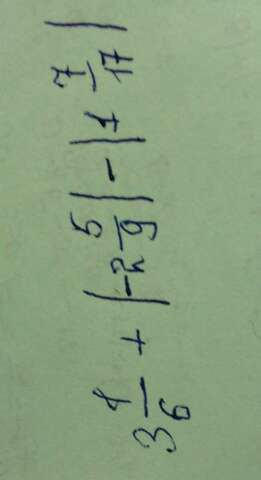 3 1/6 + |-2 5/9| - |1 7/17|